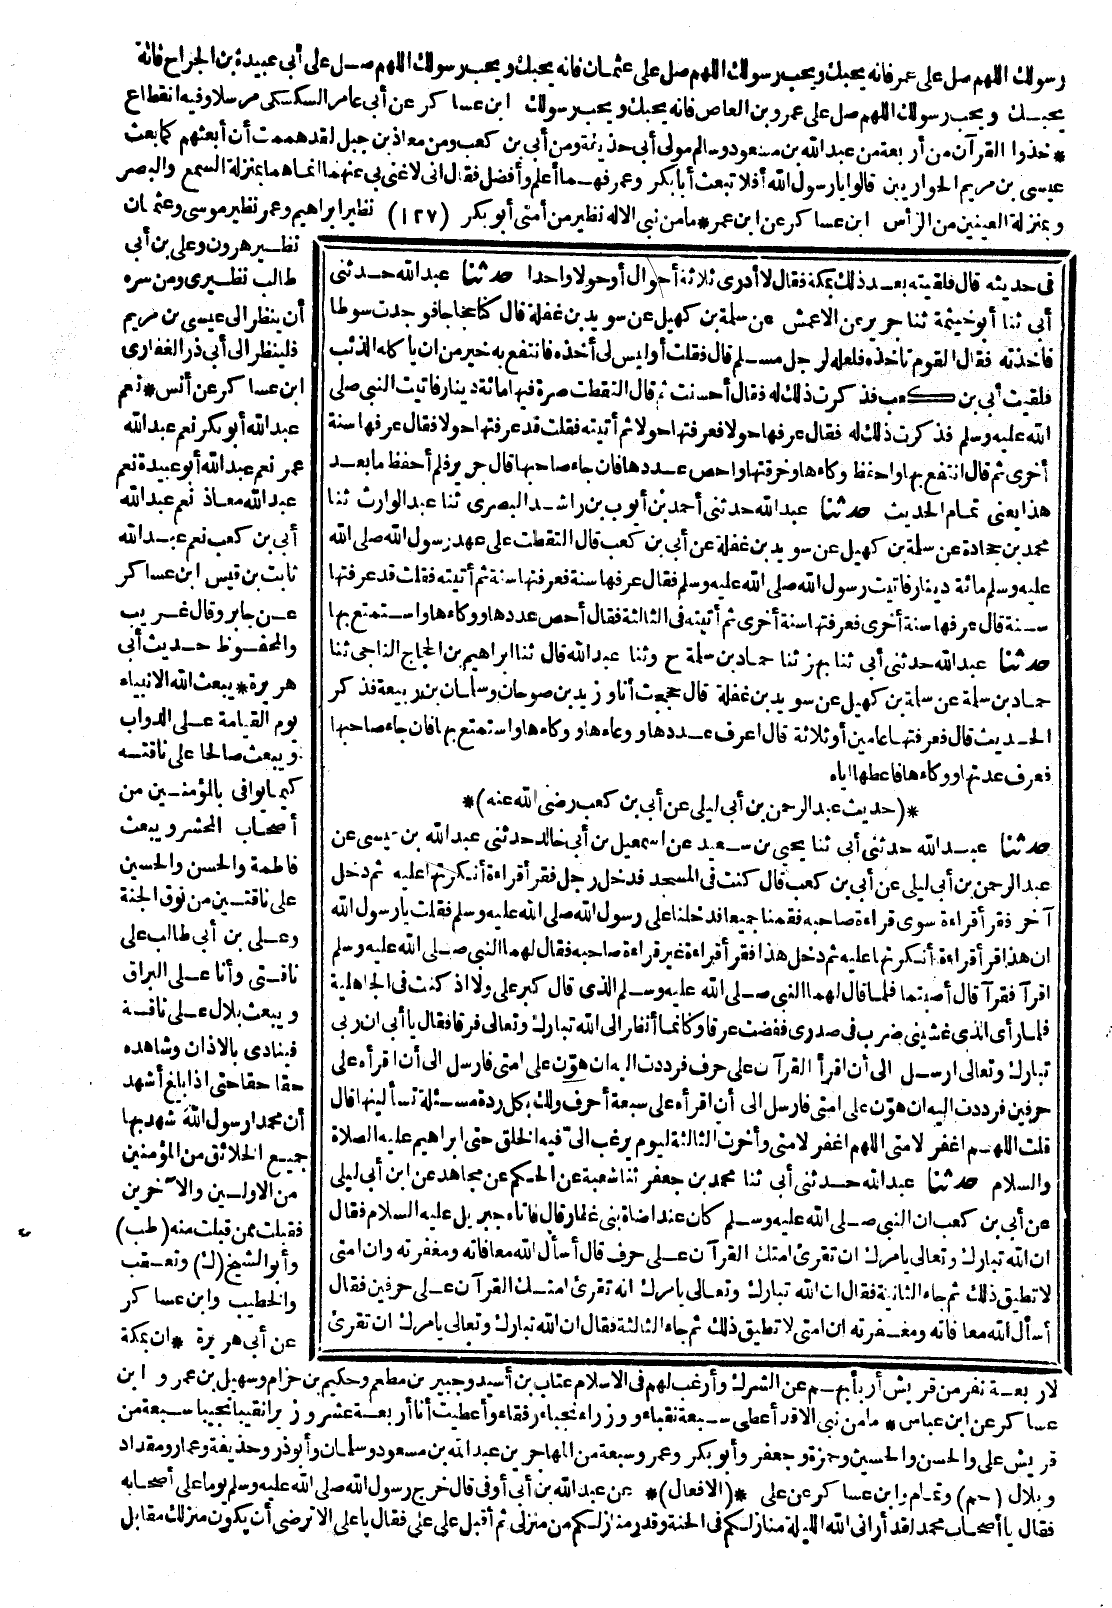 رسولك اللهم صل على عمر فانه يحبك ويحب رسولك اللهم صل على عثمان فانه يحبك ويحب رسولك اللهم صل على أبى عبيدة بن الجراح فانه
يحبك ويحب رسولك اللهم صل على عمرو بن العاص فانه يحبك ويحب رسولك ابن عساكر عن أبى عامر السكسكى مرسلا وفيه انقطاع
* خذوا القرآن من أربعة من عبد الله بن مسعود وسالم مولى أبى حذيفة ومن أبى بن كعب ومن معاذ بن جبل لقد هممت أن أبعثهم كما بعث
عيسى بن مريم الحواريين قالوا يا رسول الله أفلا تبعث أبا بكر وعمر فهما أعلم وأفضل فقال انى لا غنى بى عنهما انما هما بمنزلة السمع والبصر
وبمنزلة العينين من الرأس ابن عساكر عن ابن عمر * ما من نبى الا له نظير من أمتى أبو بكر (١٢٧) نظير ابراهيم وعمر نظير موسى وعثمان
نظير هرون وعلى بن أبى
طالب نظيرى ومن سره
أن ينظر الى عيسى بن مريم
فلينظر الى أبى ذر الغفارى
ابن عساكر عن أنس * نعم
عبد الله أبو بكر نعم عبد الله
عمر نعم عبد الله أبو عبيدة نعم
عبد الله معاذ نعم عبد الله
أبى بن كعب نعم عبد الله
ثابت بن قيس ابن عساكر
عن جابر وقال غريب
والمحفوظ حديث أبى
هريرة * يبعث الله الانبياء
يوم القيامة على الدواب
ويبعث صالحا على ناقته
كيما يوافى بالمؤمنين من
أصحاب المحشر ويبعث
فاطمة والحسن والحسين
على ناقتين من نوق الجنة
وعلى بن أبى طالب على
ناقتى وأنا على البراق
ويبعث بلال على ناقة
فينادى بالاذان وشاهده
حقا حقا حتى اذا بلغ أشهد
أن محمدا رسول الله شهد بها
جميع الخلائق من المؤمنين
من الاولين والآخرين
فقبلت ممن قبلت منه (طب)
وأبو الشيخ (ك) وتعقب
والخطيب وابن عساكر
عن أبى هريرة * ان بمكة
فى حديثه قال فلقيته بعد ذلك بمكة فقال لا أدرى ثلاثة أحوال أو حولا واحدا حدثنا عبد الله حدثنى
أبى ثنا أبو خيثمة ثنا جرير عن الاعمش عن سلمة بن كهيل عن سويد بن غفلة قال كنا حجاجا فوجدت سوطا
فأخذته فقال القوم تأخذه فلعله لرجل مسلم قال فقلت أوليس لى أخذه فانتفع به خير من ان يأكله الذئب
فلقيت أبى بن كعب فذكرت ذلك له فقال أحسنت ثم قال التقطت صرة فيها مائة دينار فأتيت النبى صلى
الله عليه وسلم فذكرت ذلك له فقال عرفها حولا فعرفتها حولا ثم أتيته فقلت قد عرفتها حولا فقال عرفها سنة
أخرى ثم قال انتفع بها واحفظ وكاءها وخرقتها واحص عددها فان جاء صاحبها قال جرير فلم أحفظ ما بعد
هذا يعنى تمام الحديث حدثنا عبد الله حدثنى أحمد بن أيوب بن راشد البصرى ثنا عبد الوارث ثنا
محمد بن جحادة عن سلمة بن كهيل عن سويد بن غفلة عن أبى بن كعب قال التقطت على عهد رسول الله صلى الله
عليه وسلم مائة دينار فأتيت رسول الله صلى الله عليه وسلم فقال عرفها سنة فعرفتها سنة ثم أتيته فقلت قد عرفتها
سنة قال عرفها سنة أخرى فعرفتها سنة أخرى ثم أتيته فى الثالثة فقال أحص عددها ووكاءها واستمتع بها
حدثنا عبد الله حدثنى أبى ثنا بهز ثنا حماد بن سلمة ح وثنا عبد الله قال ثنا ابراهيم بن الحجاج الناجى ثنا
حماد بن سلمة عن سلمة بن كهيل عن سويد بن غفلة قال حججت أنا وزيد بن صوحان وسلمان بن ربيعة فذكر
الحديث قال فعرفتها عامين أو ثلاثة قال اعرف عددها ووعاءها ووكاءها واستمتع بها فان جاء صاحبها
فعرف عدتها ووكاءها فاعطها اياه
*(حديث عبد الرحمن بن أبى ليلى عن أبى بن كعب رضى الله عنه)*
حدثنا عبد الله حدثنى أبى ثنا يحيى بن سعيد عن اسمعيل بن أبى خالد حدثنى عبد الله بن عيسى عن
عبد الرحمن بن أبى ليلى عن أبى بن كعب قال كنت فى المسجد فدخل رجل فقرأ قراءة أنكرتها عليه ثم دخل
آخر فقرأ قراءة سوى قراءة صاحبه فقمنا جميعا فدخلنا على رسول الله صلى الله عليه وسلم فقلت يا رسول الله
ان هذا قرأ قراءة أنكرتها عليه ثم دخل هذا فقرأ قراءة غير قراءة صاحبه فقال لهما النبى صلى الله عليه وسلم
اقرآ فقرآ قال أصبتما فلما قال لهما النبى صلى الله عليه وسلم الذى قال كبر على ولا اذ كنت فى الجاهلية
فلما رأى الذى غشينى ضرب فى صدرى ففضت عرقا وكأنما أنظر الى الله تبارك وتعالى فرقا فقال يا أبى ان ربى
تبارك وتعالى ارسل الى أن اقرأ القرآن على حرف فرددت اليه ان هوّن على امتى فارسل الى أن اقرأه على
حرفين فرددت اليه ان هوّن على امتى فارسل الى أن اقرأه على سبعة أحرف ولك بكل ردة مسئلة تسألنيها قال
قلت اللهم اغفر لامتى اللهم اغفر لامتى وأخرت الثالثة ليوم يرغب الىّ فيه الخلق حتى ابراهيم عليه الصلاة
والسلام حدثنا عبد الله حدثنى أبى ثنا محمد بن جعفر ثنا شعبة عن الحكم عن مجاهد عن ابن أبى ليلى
عن أبى بن كعب ان النبى صلى الله عليه وسلم كان عند اضاة بنى غفار قال فاتاه جبريل عليه السلام فقال
ان الله تبارك وتعالى يامرك ان تقرئ امتك القرآن على حرف قال أسأل الله معافاته ومغفرته وان امتى
لا تطيق ذلك ثم جاء الثانية فقال ان الله تبارك وتعالى يامرك انه تقرئ امتك القرآن على حرفين فقال
أسأل الله معافاته ومغفرته ان امتى لا تطيق ذلك ثم جاء الثالثة فقال ان الله تبارك وتعالى يامرك ان تقرئ
لاربعة نفر من قريش أربأ بهم عن الشرك وأرغب لهم فى الاسلام عتاب بن أسيد وجبير بن مطعم وحكيم بن حزام وسهيل بن عمرو ابن
عساكر عن ابن عباس * ما من نبى الا قد أعطى سبعة نقباء ووزراء نجباء رفقاء وأعطيت أنا أربعة عشر وزيرا نقيبا نجيبا سبعة من
قريش على والحسن والحسين وحمزة وجعفر وأبو بكر وعمر وسبعة من المهاجرين عبد الله بن مسعود وسلمان وأبو ذر وحذيفة وعمار ومقداد
وبلال (حم) وتمام وابن عساكر عن على *(الافعال)* عن عبد الله بن أبى أوفى قال خرج رسول الله صلى الله عليه وسلم يوما على أصحابه
فقال يا أصحاب محمد لقد أرانى الله الليلة منازلكم فى الجنة وقدر منازلكم من منزلى ثم أقبل على على فقال يا على الا ترضى أن يكون منزلك مقابل